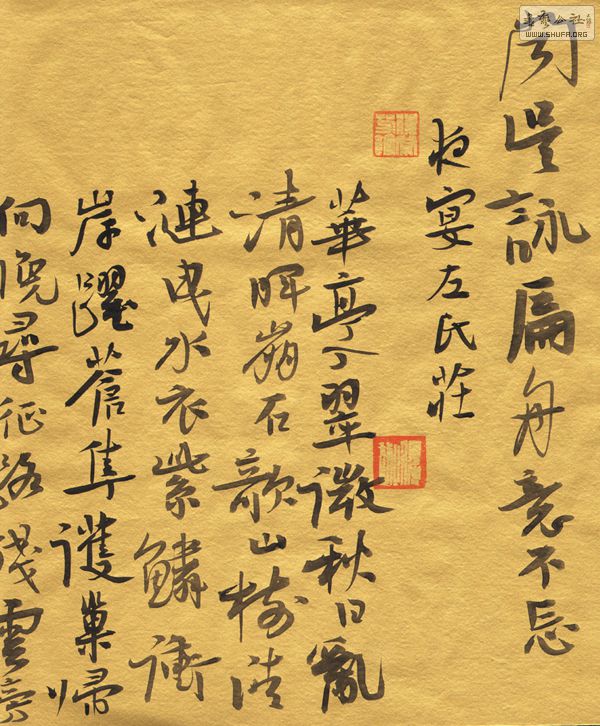 聞吳詠扁舟意不忘
夜宴左氏莊
華亭入翠微秋日亂
清暉崩石欹山樹清
漣曳水衣紫鱗衝
岸躍蒼隼護巢歸
向晚尋征路殘雲傍
WWW.SHUFA.ORG